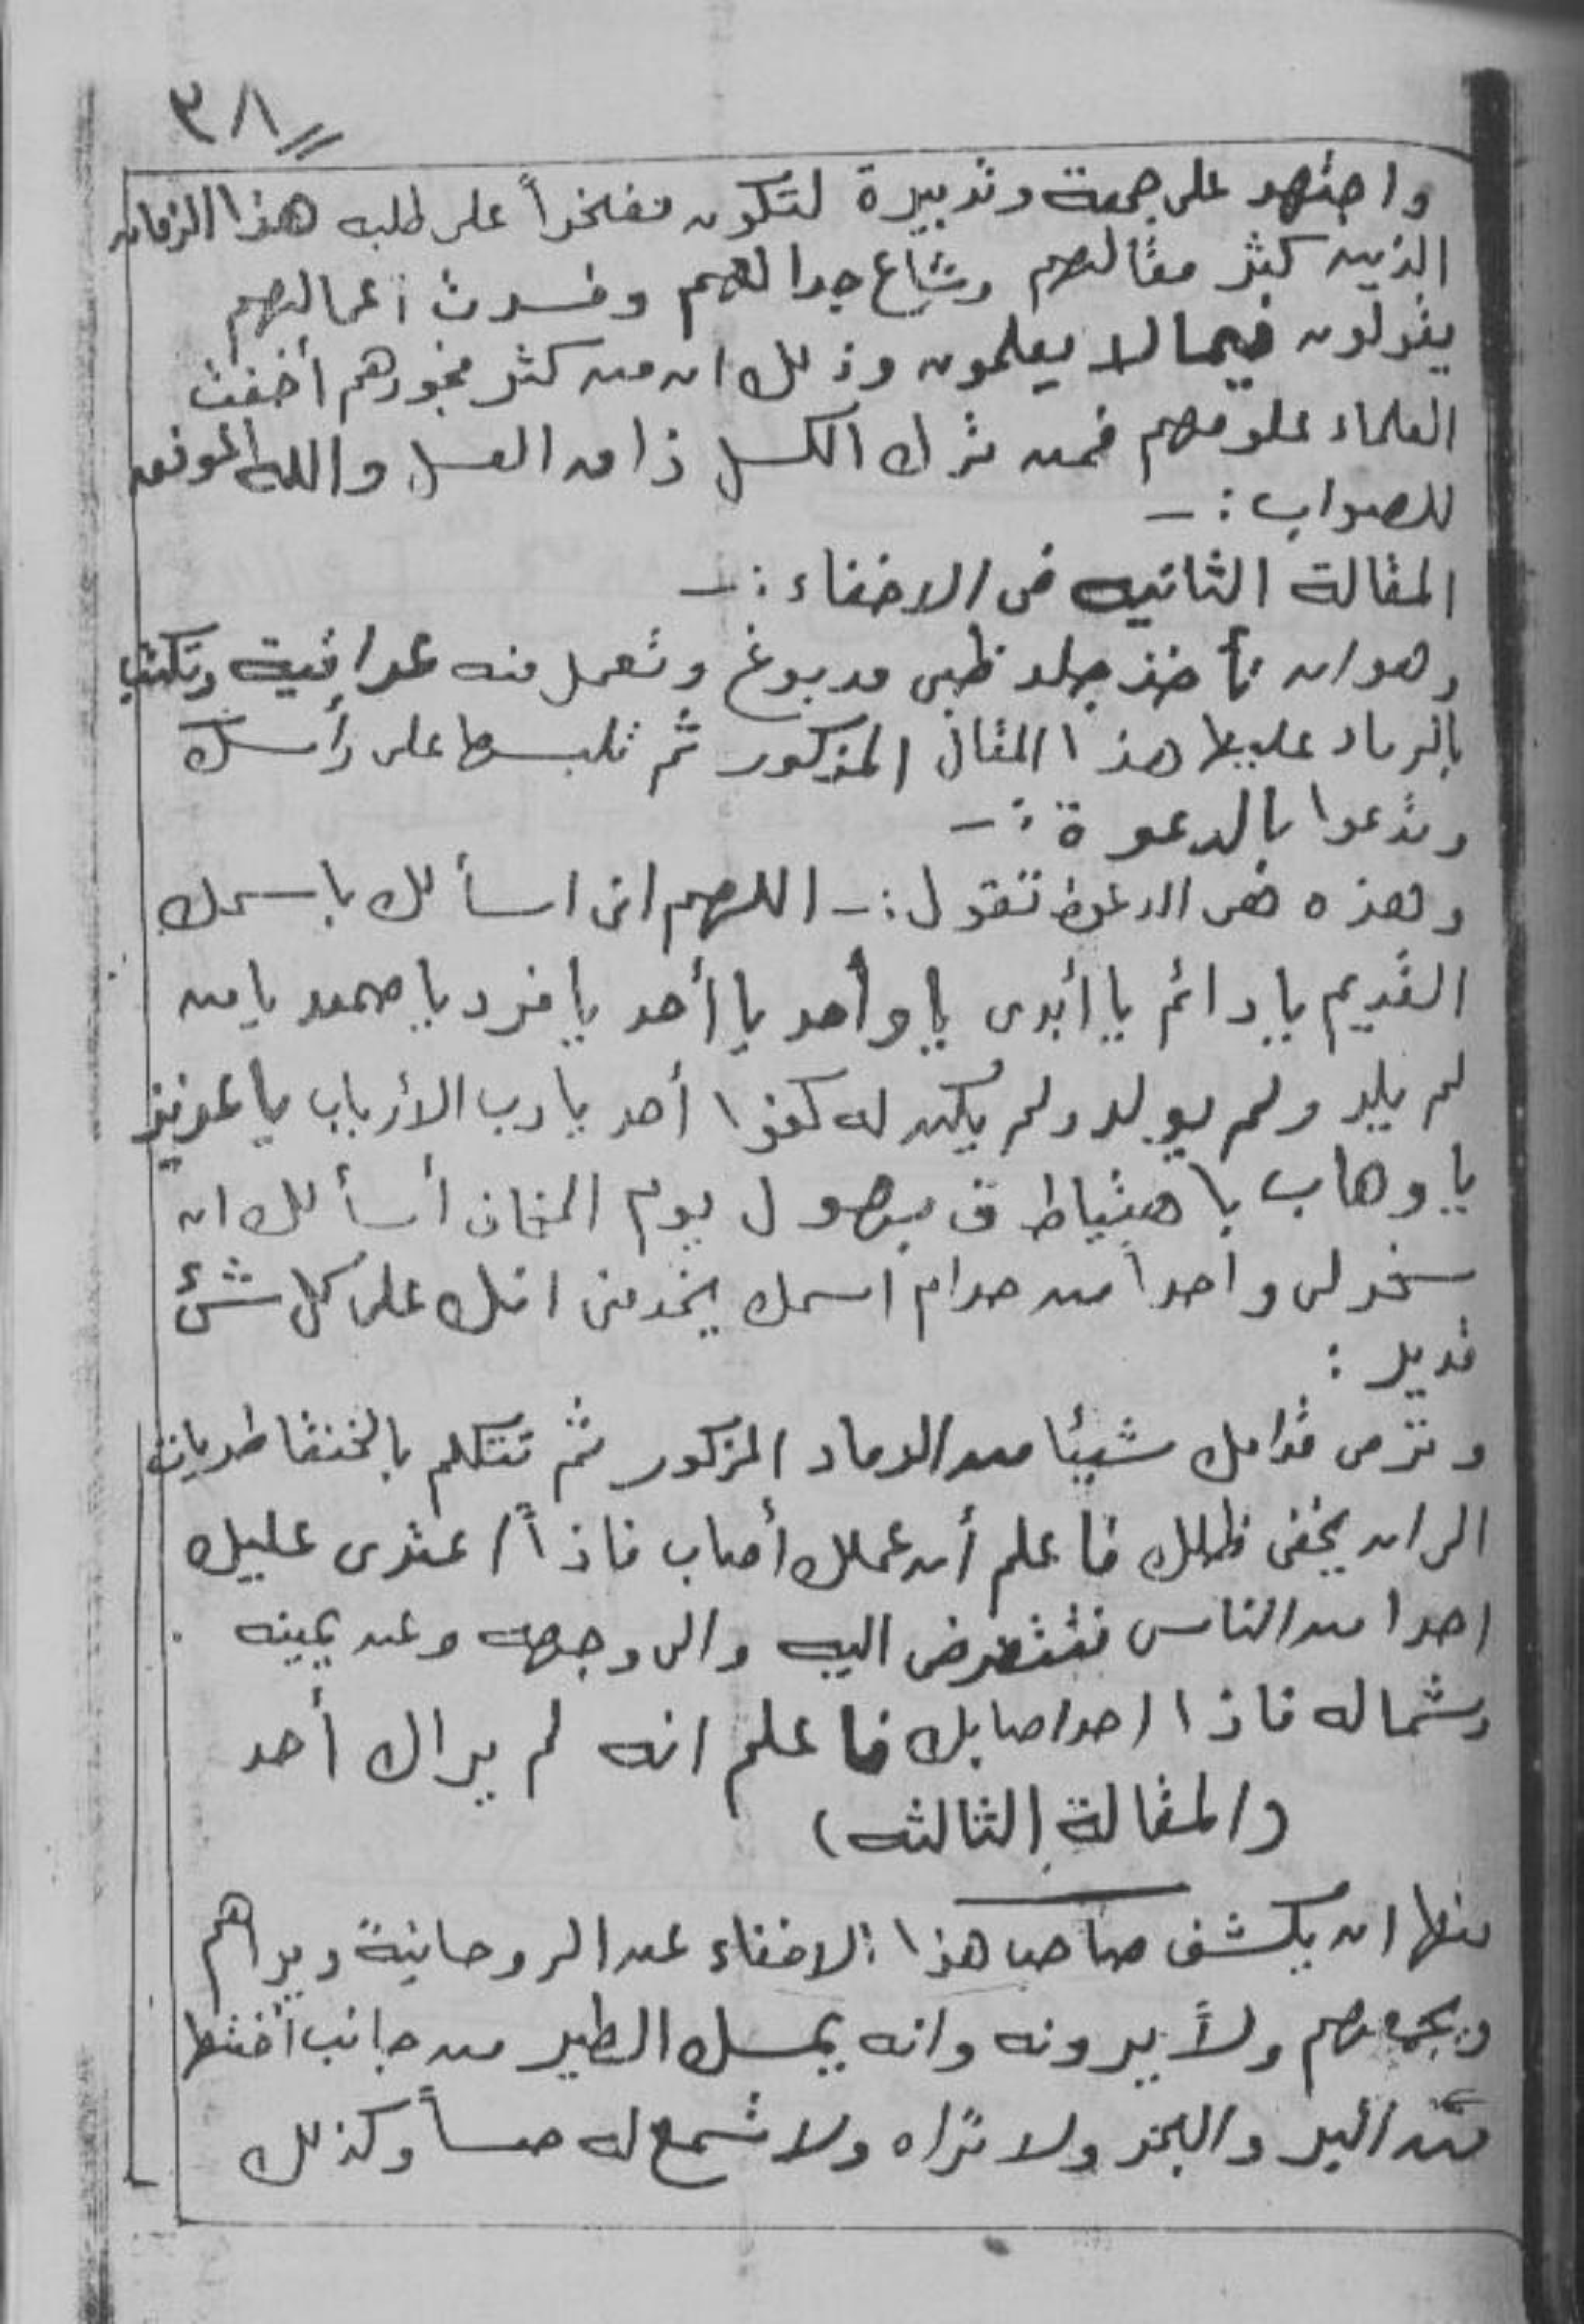 ٣٨
واجتهد على جمعة وتدبيرة لتكون مفتخراً على طلبه هذا الزمان
الذين كثر مقالتهم وشاع جدالهم وفسدت أعمالهم
يقولون فيما لا يعلمون وذلك ان من كثر فجورهم أخفت
العلماء علومهم فمن ترك الكسل ذاق العسل والله الموفق
للصواب :ـ
المقالة الثانيه فى الاخفاء :ـ
وهو ان تأخذ جلد ظبى مدبوغ وتعمل منه عراقية وتكتب
بالرماد عليها هذا المثال المذكور ثم تلبسها على رأسك
وتدعوا بالدعوة :ـ
وهذه هى الدعوة تقول :ـ اللهم انى اسألك باسمك
القديم يا دائم يا أبدى يا واحد يا أحد يا فرد يا صمد يا من
لم يلد ولم يولد ولم يكن له كفوا أحد يا رب الأرباب يا عزيز
يا وهاب يا يوم أسألك ان
تسخر لى واحداً من خدام اسمك يخدمنى انك على كل شئ
قدير :
وترمى قدامك شيئا من الرماد المذكور ثم تتكلم
الى ان يخفى ظلك فاعلم أن عملك أصاب فاذاً اعتدى عليك
احدا من الناس فتعرض اليه والى وجهه وعن يمينه
وشماله فاذا احد اصابك فاعلم انه لم يراك أحد
(المقالة الثالثه)
منها ان يكشف صاحب هذا الاخفاء عن الروحانية ويراهم
ولا يرونه وانه يمسك الطير من جانب
البر والبحر ولا تراه ولا تسمع له حساً وكذلك